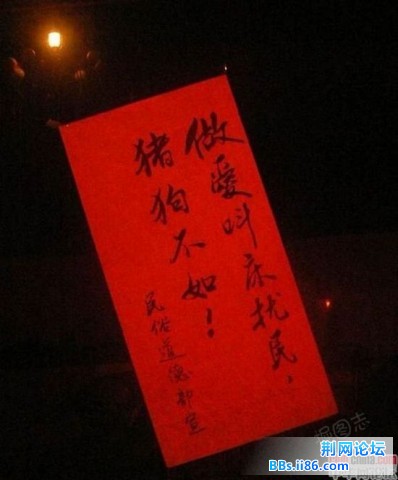 做爱叫床扰民，
猪狗不如！
民俗道德部宣
荆网论坛
BBs.ii86.com